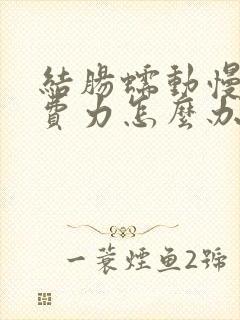 結腸蠕動慢
費力怎麼办
一蓑煙鱼2號